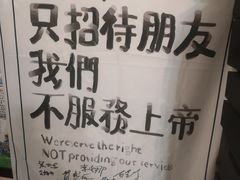 只招待朋友
我們
不服務上帝
We reserve the right
NOT providing our service